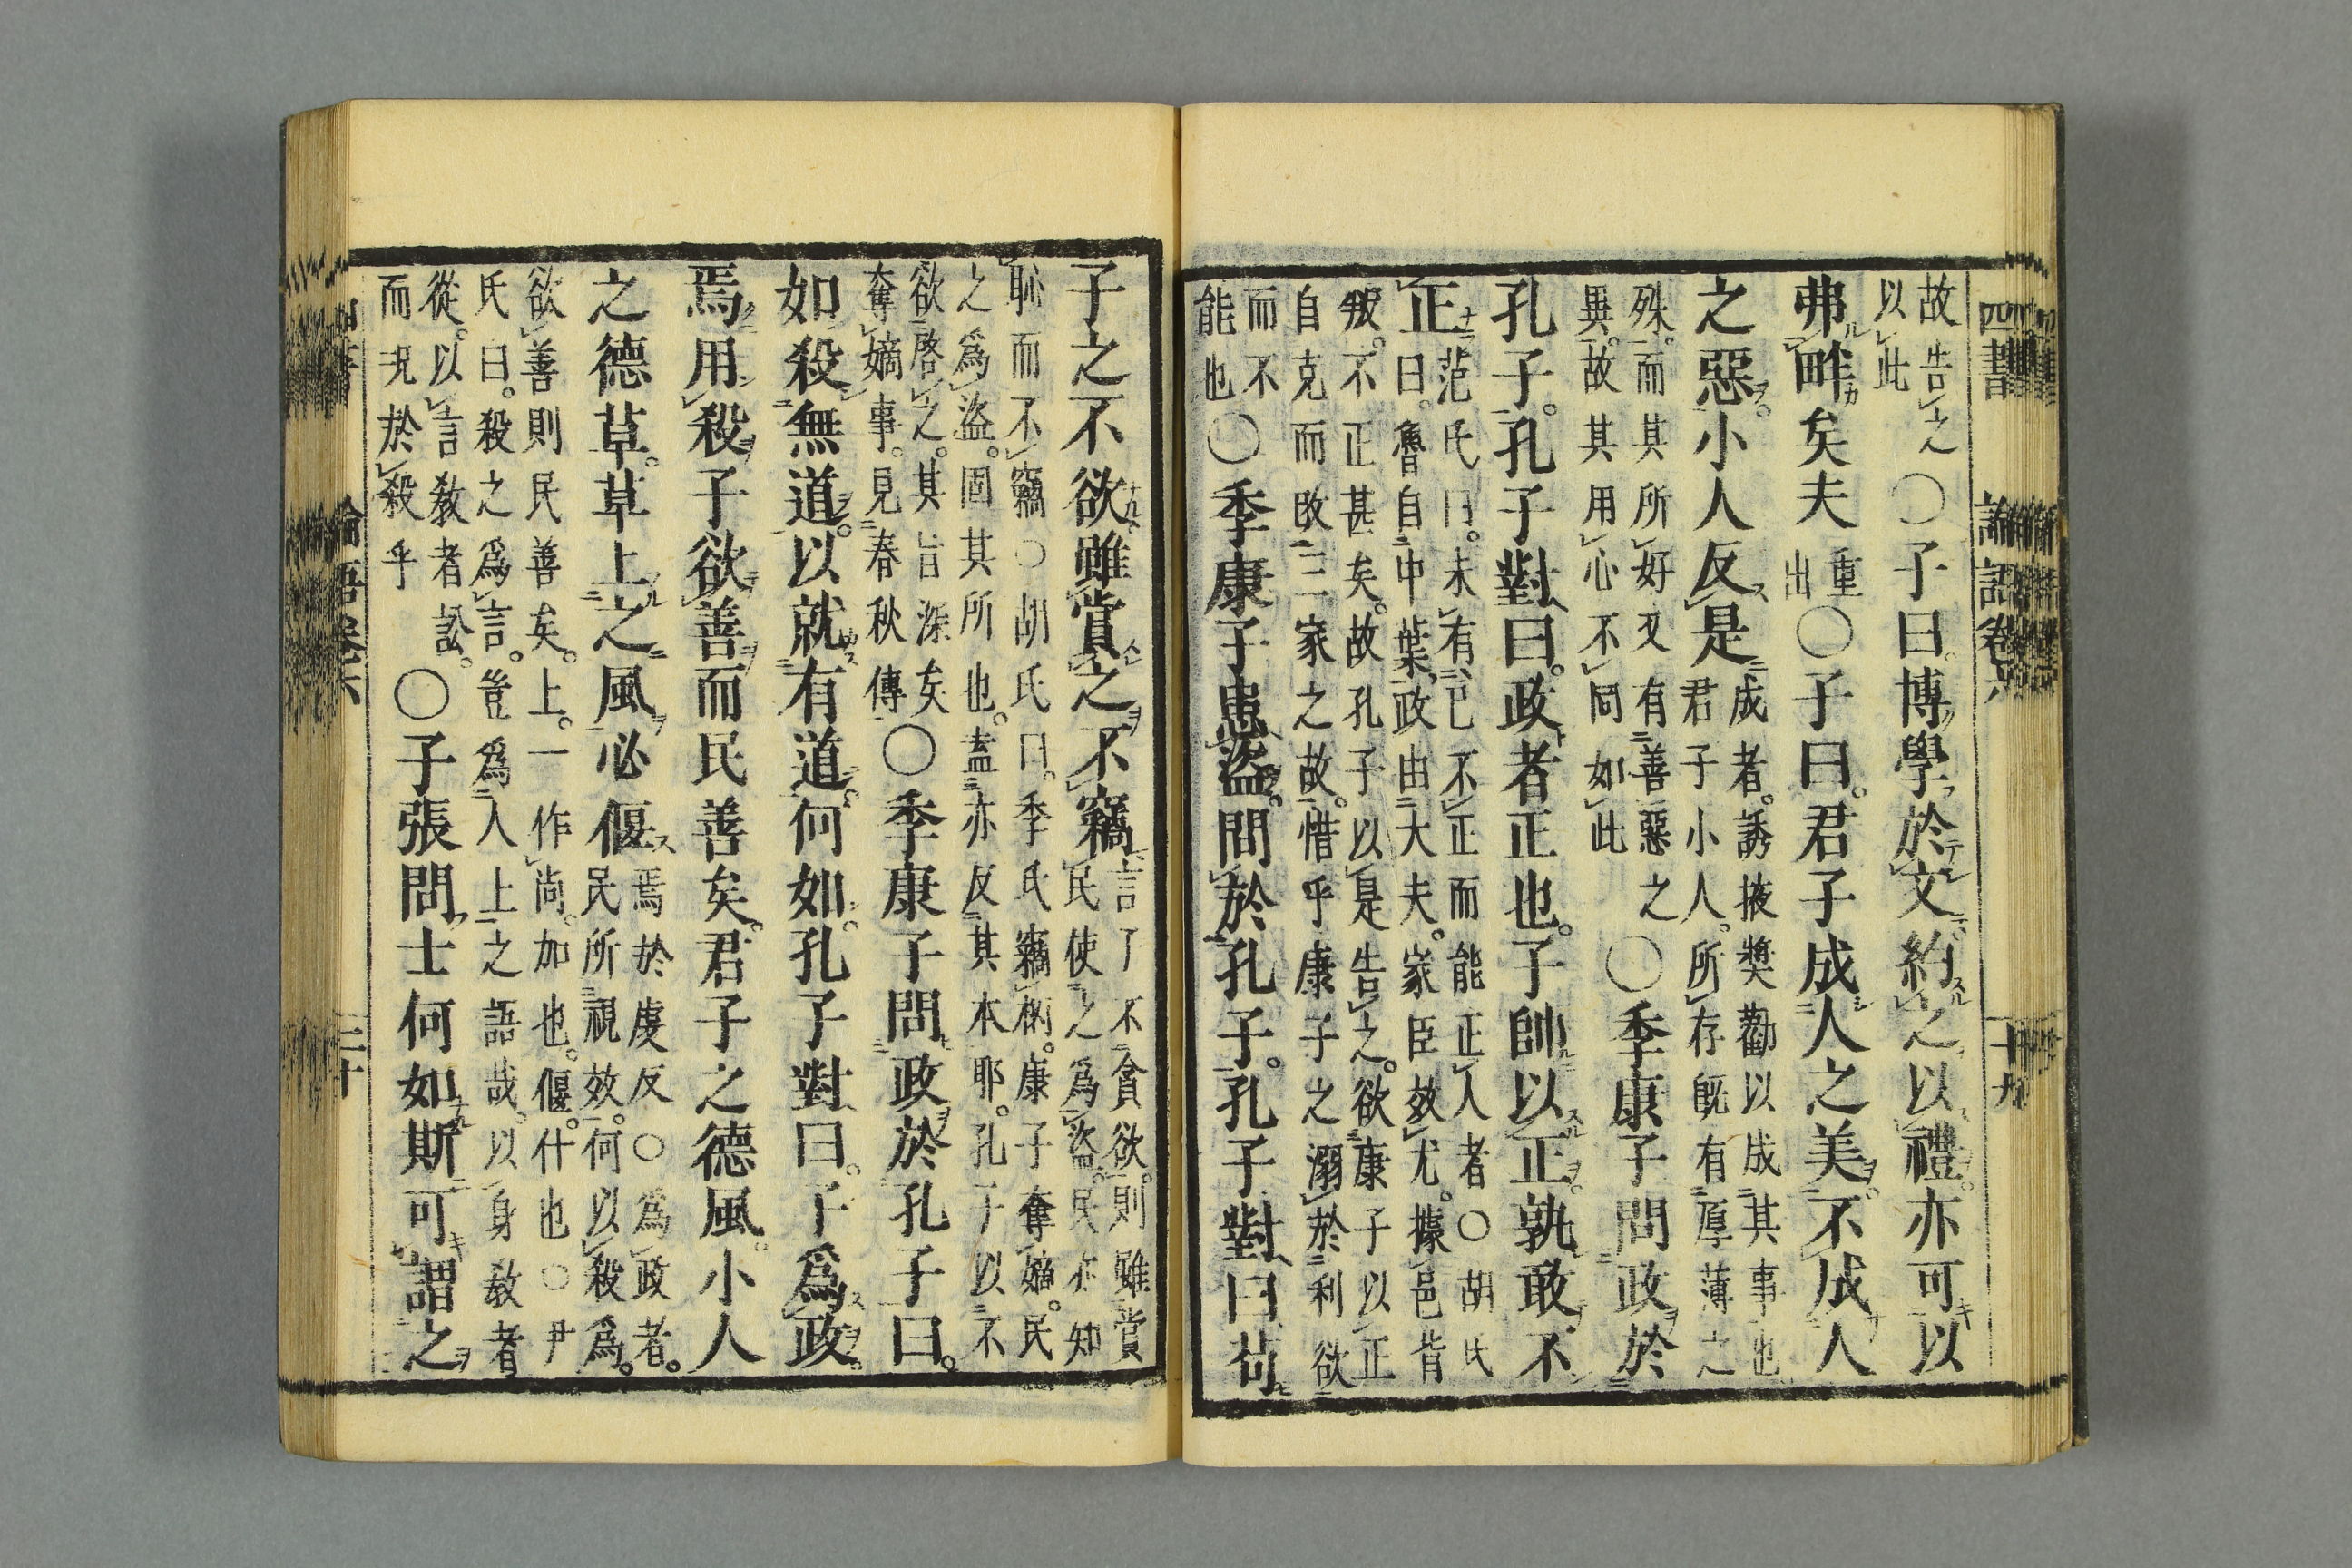 四書 論語卷六 十九
故告之
以此
〇子曰博學於文約之以禮亦可以
弗畔矣夫
重
出
〇子曰君子成人之美不成人
之惡小人反是
成者誘掖奬勸以成其事也
君子小人所存既有厚薄之
殊而其所好又有善惡之
異故其用心不同如此
〇季康子問政於
孔子孔子對曰政者正也子帥以正孰敢不
正
范氏曰未有己不正而能正人者〇胡氏
曰魯自中葉政由大夫家臣效尤據邑背
叛不正甚矣故孔子以是告之欲康子以正
自克而改三家之故惜乎康子之溺於利欲
而不
能也
〇季康子患盜問於孔子孔子對曰苟
子之不欲雖賞之不竊
言子不貪欲則雖賞
民使之爲盜民亦知
恥而不竊〇胡氏曰季氏竊柄康子奪嫡民
之爲盜固其所也盍亦反其本耶孔子以不
欲啓之其旨深矣
奪嫡事見春秋傳
〇季康子問政於孔子曰
如殺無道以就有道何如孔子對曰子爲政
焉用殺子欲善而民善矣君子之德風小人
之德草草上之風必偃
焉於虔反〇爲政者
民所視效何以殺爲
欲善則民善矣上一作尚加也偃什也〇尹
氏曰殺之爲言豈爲人上之語哉以身敎者
從以言敎者訟
而況於殺乎
〇子張問士何如斯可謂之
三十